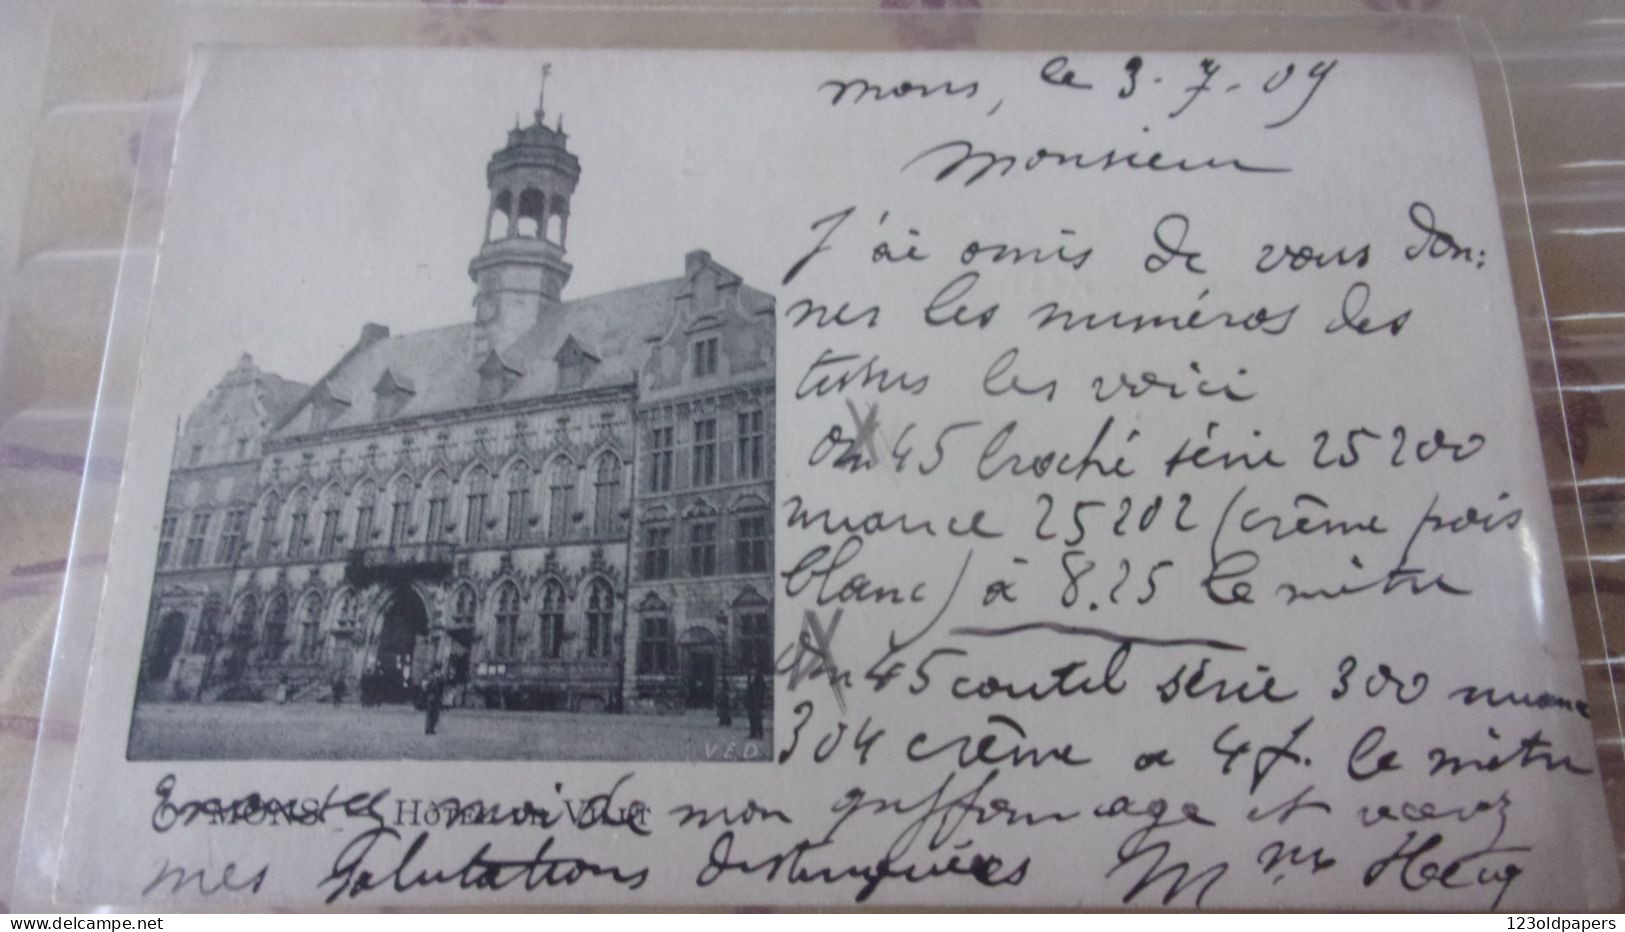 Mons, le 3.7.09
Monsieur
J'ai omis de vous don:
ner les numéros des
tissus les voici
en 45 broché série 25200
nuance 25202 (crème pois
blanc) à 8.25 le mètre
en 45 coutil série 300 nuance
304 crème a 4f. le mètre
V E D
MONS Hôtel de Ville
moi de mon griffonnage et recevez
mes salutations distinguées Mme
123oldpapers